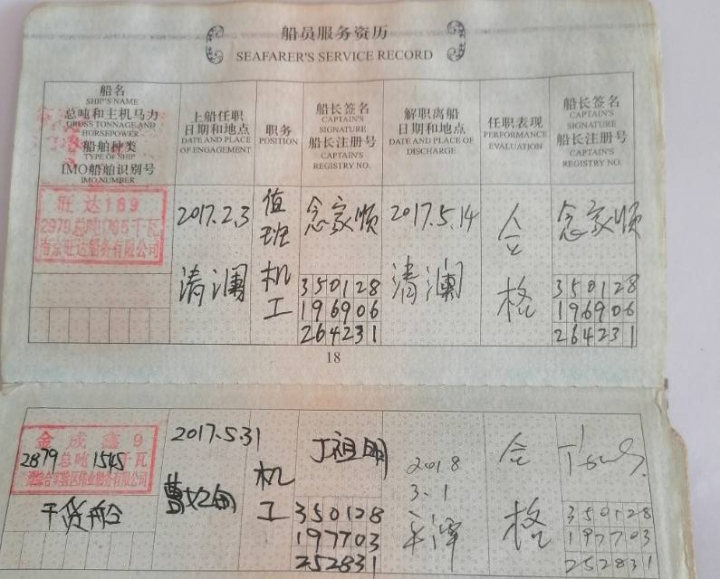 船员服务资历
SEAFARER'S SERVICE RECORD
船名
SHIP'S NAME
总吨和主机马力
GROSS TONNAGE AND
HORSEPOWER
船舶种类
TYPE OF SHIP
IMO船舶识别号
IMO NUMBER
上船任职
日期和地点
DATE AND PLACE
OF ENGAGEMENT
职务
POSITION
船长签名
CAPTAIN'S
SIGNATURE
船长注册号
CAPTAIN'S
REGISTRY NO.
解职离船
日期和地点
DATE AND PLACE OF
DISCHARGE
任职表现
PERFORMANCE
EVALUATION
船长签名
CAPTAIN'S
SIGNATURE
船长注册号
CAPTAIN'S
REGISTRY NO.
旺达169
2976总吨 765千瓦
南京旺达船务有限公司
2017.2.3
清澜
值班机工
念家顺
350128
196906
264231
2017.5.14
清澜
合格
念家顺
350128
196906
264231
18
金成鑫9
2879总吨1545千瓦
干货船
2017.5.31
机工
丁祖明
350128
197703
252831
2018
3.1
平潭
合格
350128
197703
252831